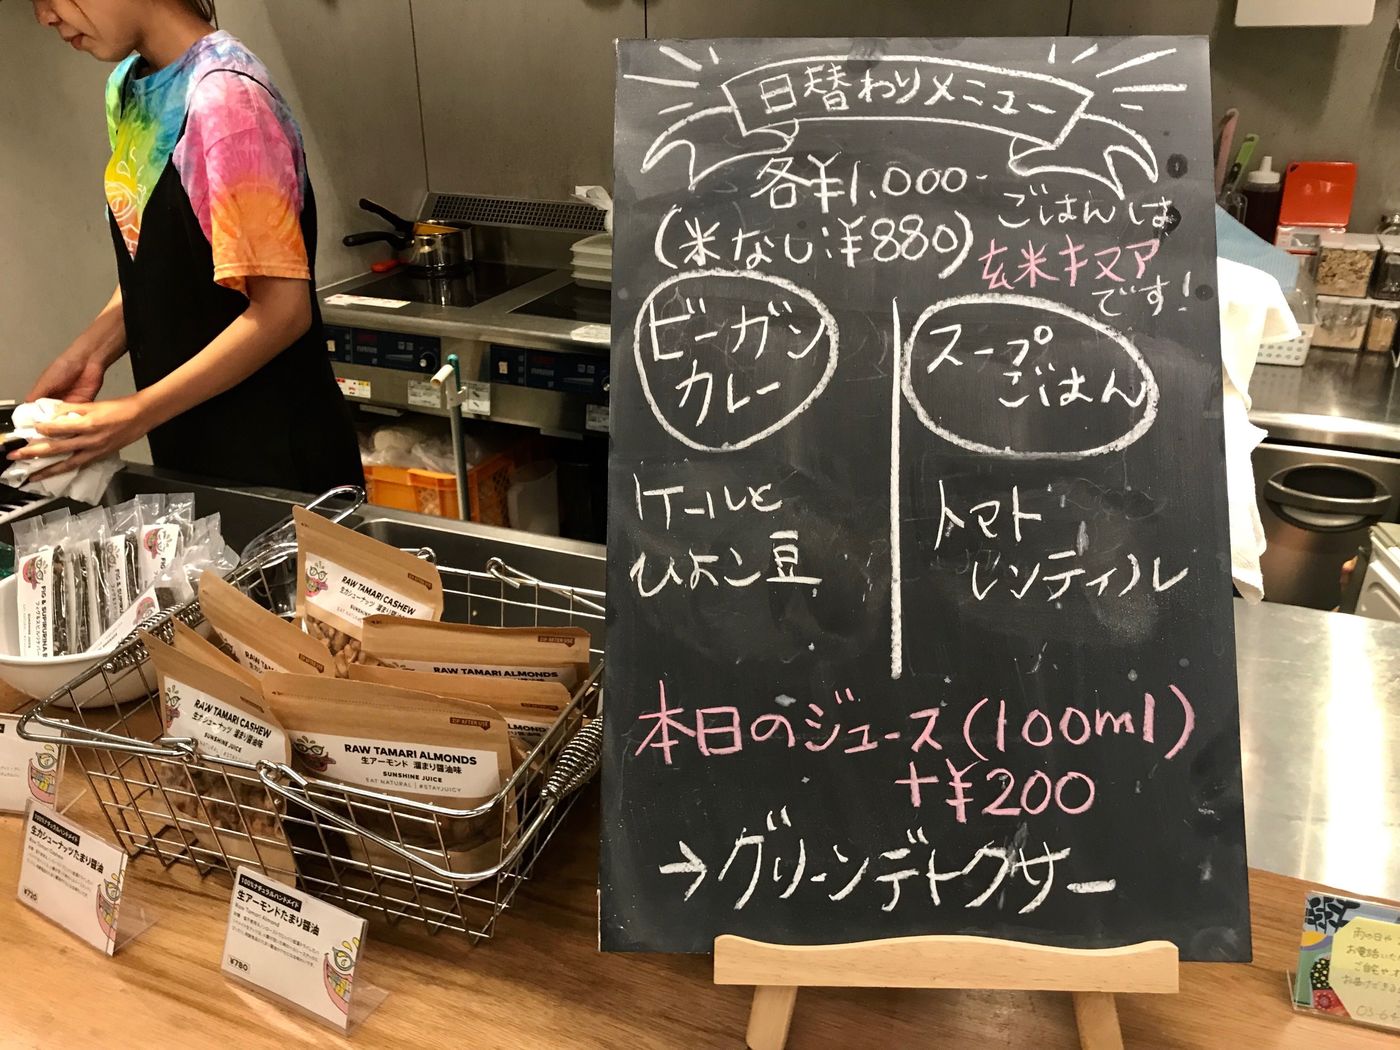 日替わりメニュー
各¥1,000-
(米なし:¥880)
ごはんは
玄米キヌア
です!
ビーガン
カレー
スープ
ごはん
ケールと
ひよこ豆
トマト
レンティル
本日のジュース(100ml)
+¥200
→グリーンデトクサー
RAW TAMARI CASHEW
生カシューナッツ 溜まり醤油味
SUNSHINE JUICE
RAW TAMARI ALMONDS
RAW TAMARI CASHEW
生カシューナッツ 溜まり醤油味
SUNSHINE JUICE
RAW TAMARI ALMONDS
生アーモンド 溜まり醤油味
SUNSHINE JUICE
EAT NATURAL | #STAYJUICY
FIG & SUPIRURINA
100%ナチュラルハンドメイド
生カシューナッツたまり醤油
Raw Tamari Cashew
¥720
100%ナチュラルハンドメイド
生アーモンドたまり醤油
Raw Tamari Almond
¥780
雨の日や
お電話いた
03-64